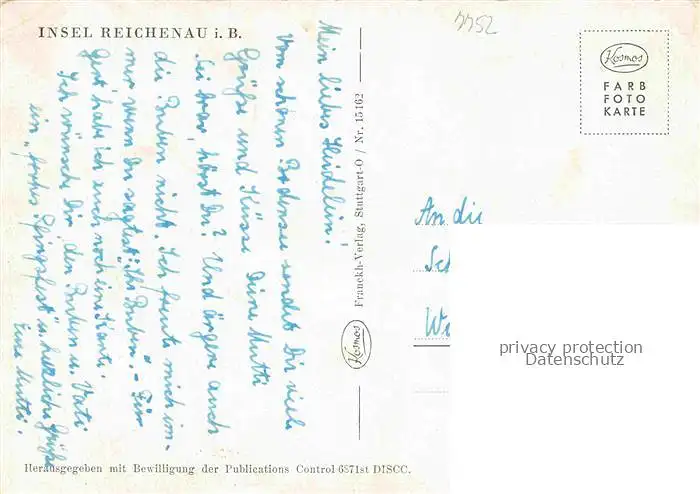 INSEL REICHENAU i. B.
7544
Kosmos
FARB
FOTO
KARTE
Mein liebes Heidelein!
Vom schönen Bodensee sendet Dir viele
Grüße und Küsse Deine Mutti
Sei brav, hörst Du? Und ärgere auch
die Buben nicht. Ich freute mich im-
mer wenn Du sagtest „Ihr Buben". - Für
Gert habe ich auch noch eine Karte.
Ich wünsche Dir, den Buben u. Vati
ein „frohes Pfingstfest" u. herzliche Grüße
Eure Mutti.
Kosmos
Franckh-Verlag, Stuttgart-O / Nr. 15162
An die
privacy protection
Datenschutz
Herausgegeben mit Bewilligung der Publications Control 6871st DISCC.